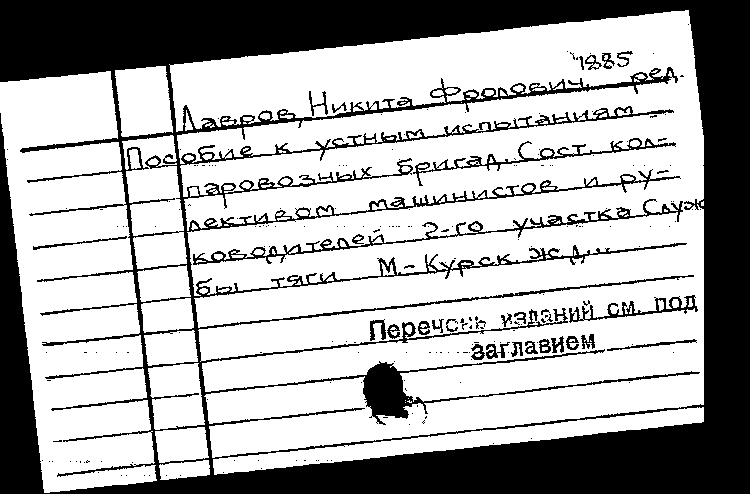 1885
Лавров, Никита Фролович, ред.
Пособие к устным испытаниям
паровозных бригад. Сост. кол-
лективом машинистов и ру-
ководителей 2-го участка Служ
бы тяги М.-Курск. ж.д...
Перечень изданий см. под
заглавием